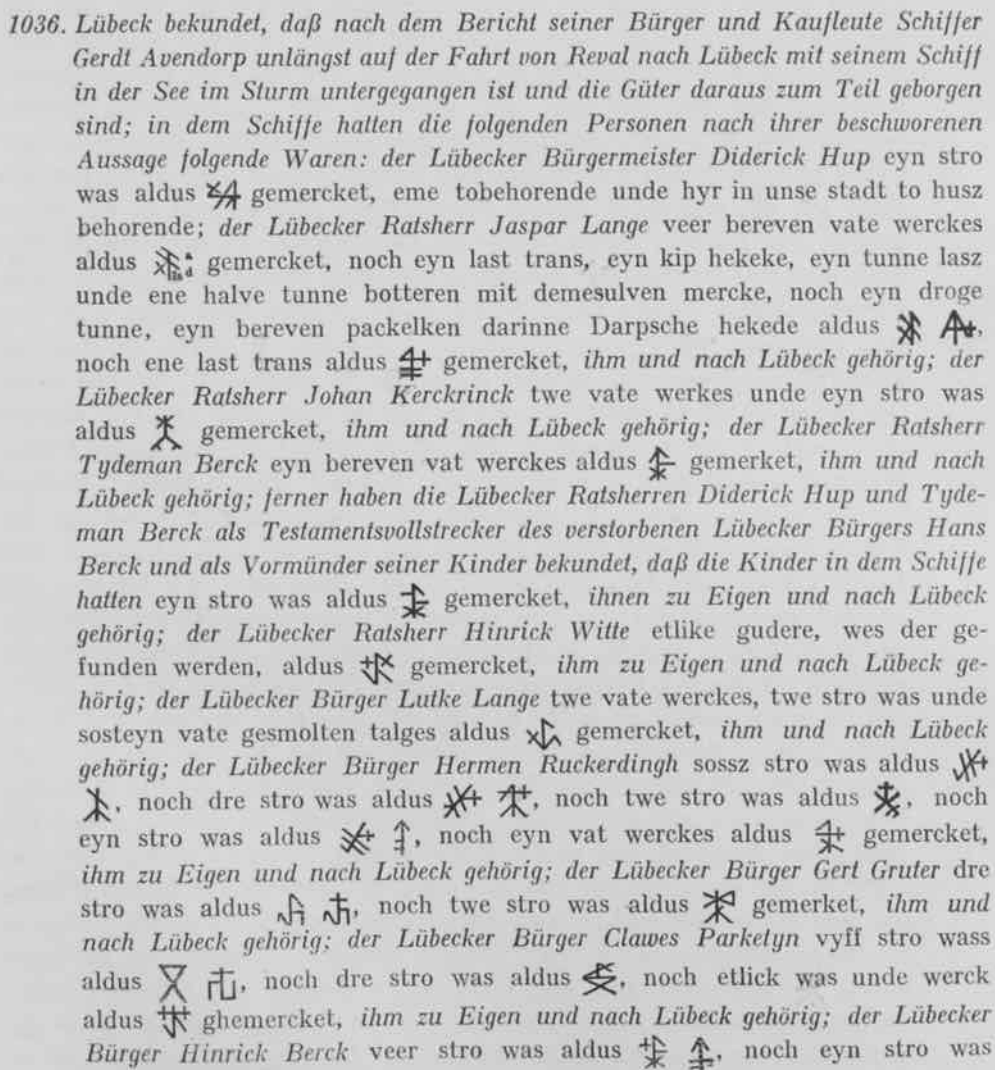 1036. Lübeck bekundet, daß nach dem Bericht seiner Bürger und Kaufleute Schiffer
Gerdt Avendorp unlängst auf der Fahrt von Reval nach Lübeck mit seinem Schiff
in der See im Sturm untergegangen ist und die Güter daraus zum Teil geborgen
sind; in dem Schiffe hatten die folgenden Personen nach ihrer beschworenen
Aussage folgende Waren: der Lübecker Bürgermeister Diderick Hup eyn stro
was aldus gemercket, eme tobehorende unde hyr in unse stadt to husz
behorende; der Lübecker Ratsherr Jaspar Lange veer bereven vate werckes
aldus gemercket, noch eyn last trans, eyn kip hekeke, eyn tunne lasz
unde ene halve tunne botteren mit demesulven mercke, noch eyn droge
tunne, eyn bereven packelken darinne Darpsche hekede aldus ,
noch ene last trans aldus gemercket, ihm und nach Lübeck gehörig; der
Lübecker Ratsherr Johan Kerckrinck twe vate werkes unde eyn stro was
aldus gemercket, ihm und nach Lübeck gehörig; der Lübecker Ratsherr
Tydeman Berck eyn bereven vat werckes aldus gemerket, ihm und nach
Lübeck gehörig; ferner haben die Lübecker Ratsherren Diderick Hup und Tyde-
man Berck als Testamentsvollstrecker des verstorbenen Lübecker Bürgers Hans
Berck und als Vormünder seiner Kinder bekundet, daß die Kinder in dem Schiffe
hatten eyn stro was aldus gemercket, ihnen zu Eigen und nach Lübeck
gehörig; der Lübecker Ratsherr Hinrick Witte etlike gudere, wes der ge-
funden werden, aldus gemercket, ihm zu Eigen und nach Lübeck ge-
hörig; der Lübecker Bürger Lutke Lange twe vate werckes, twe stro was unde
sosteyn vate gesmolten talges aldus gemercket, ihm und nach Lübeck
gehörig; der Lübecker Bürger Hermen Ruckerdingh sossz stro was aldus
, noch dre stro was aldus , noch twe stro was aldus , noch
eyn stro was aldus , noch eyn vat werckes aldus gemercket,
ihm zu Eigen und nach Lübeck gehörig; der Lübecker Bürger Gert Gruter dre
stro was aldus , noch twe stro was aldus gemerket, ihm und
nach Lübeck gehörig; der Lübecker Bürger Clawes Parketyn vyff stro wass
aldus , noch dre stro was aldus , noch etlick was unde werck
aldus ghemercket, ihm zu Eigen und nach Lübeck gehörig; der Lübecker
Bürger Hinrick Berck veer stro was aldus , noch eyn stro was